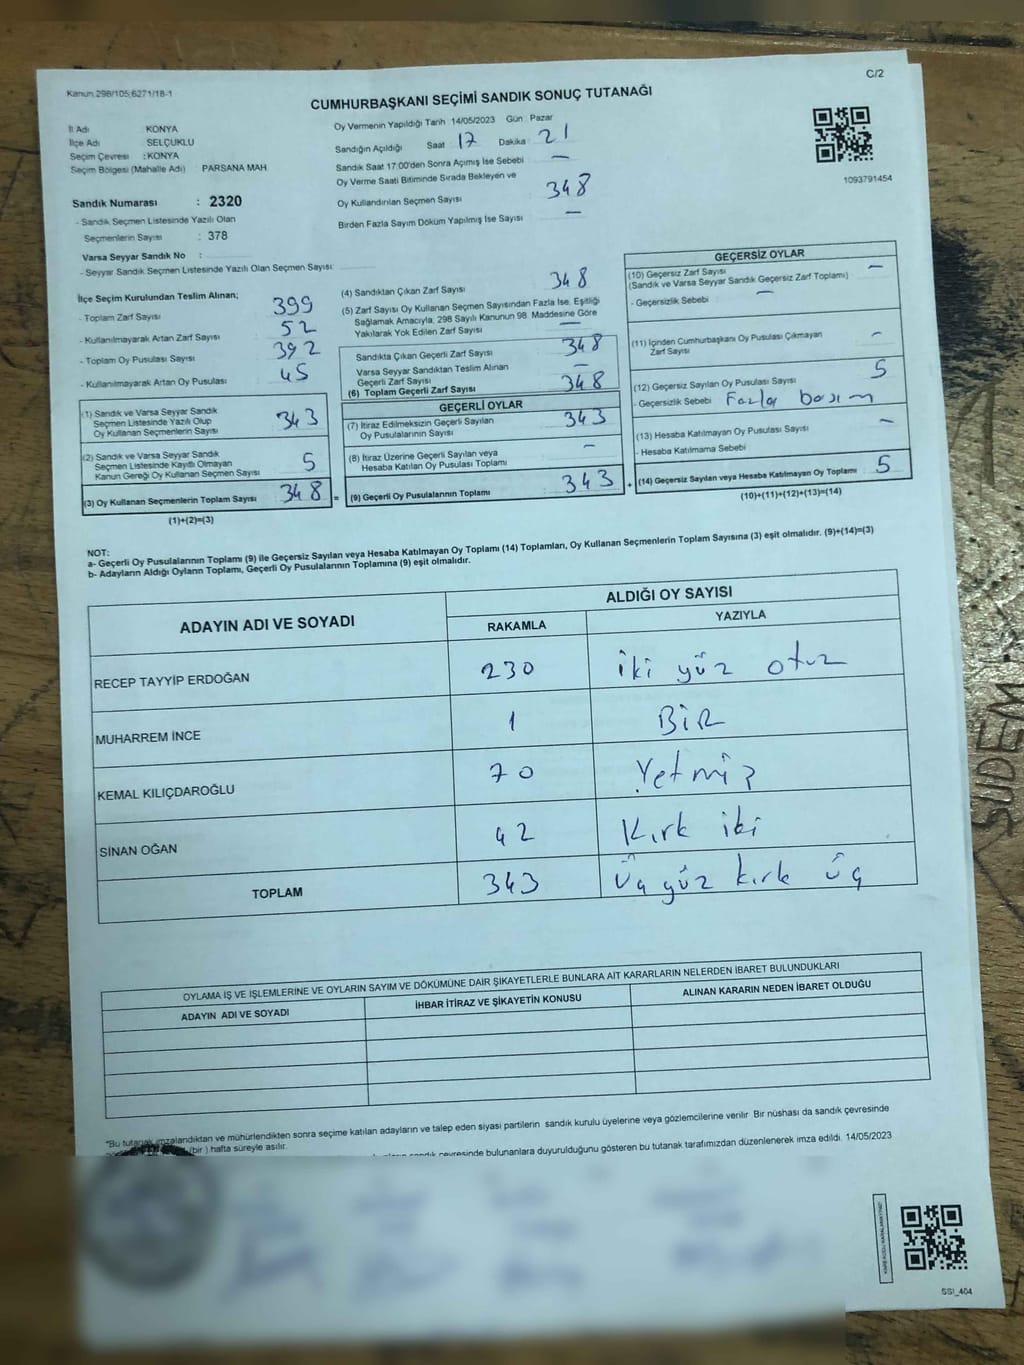 Kanun 298/105;6271/18-1
C/2
CUMHURBAŞKANI SEÇİMİ SANDIK SONUÇ TUTANAĞI
İl Adı : KONYA
İlçe Adı : SELÇUKLU
Seçim Çevresi : KONYA
Seçim Bölgesi (Mahalle Adı) PARSANA MAH
Sandık Numarası : 2320
- Sandık Seçmen Listesinde Yazılı Olan
Seçmenlerin Sayısı : 378
Varsa Seyyar Sandık No :
- Seyyar Sandık Seçmen Listesinde Yazılı Olan Seçmen Sayısı:
Oy Vermenin Yapıldığı Tarih 14/05/2023 Gün : Pazar
Sandığın Açıldığı Saat 17 Dakika : 21
Sandık Saat 17:00'den Sonra Açımış İse Sebebi —
Oy Verme Saati Bitiminde Sırada Bekleyen ve
Oy Kullandırılan Seçmen Sayısı 348
Birden Fazla Sayım Döküm Yapılmış İse Sayısı —
1093791454
İlçe Seçim Kurulundan Teslim Alınan;
- Toplam Zarf Sayısı 399
- Kullanılmayarak Artan Zarf Sayısı 52
- Toplam Oy Pusulası Sayısı 392
- Kullanılmayarak Artan Oy Pusulası 45
(1) Sandık ve Varsa Seyyar Sandık
Seçmen Listesinde Yazılı Olup
Oy Kullanan Seçmenlerin Sayısı 343
(2) Sandık ve Varsa Seyyar Sandık
Seçmen Listesinde Kayıtlı Olmayan
Kanun Gereği Oy Kullanan Seçmen Sayısı 5
(3) Oy Kullanan Seçmenlerin Toplam Sayısı 348 =
(1)+(2)=(3)
(4) Sandıktan Çıkan Zarf Sayısı 348
(5) Zarf Sayısı Oy Kullanan Seçmen Sayısından Fazla İse, Eşitliği
Sağlamak Amacıyla, 298 Sayılı Kanunun 98. Maddesine Göre
Yakılarak Yok Edilen Zarf Sayısı —
Sandıkta Çıkan Geçerli Zarf Sayısı 348
Varsa Seyyar Sandıktan Teslim Alınan
Geçerli Zarf Sayısı —
(6) Toplam Geçerli Zarf Sayısı 348
GEÇERLİ OYLAR
(7) İtiraz Edilmeksizin Geçerli Sayılan
Oy Pusulalarının Sayısı 343
(8) İtiraz Üzerine Geçerli Sayılan veya
Hesaba Katılan Oy Pusulası Toplamı -
(9) Geçerli Oy Pusulalarının Toplamı 343 +
GEÇERSİZ OYLAR
(10) Geçersiz Zarf Sayısı —
(Sandık ve Varsa Seyyar Sandık Geçersiz Zarf Toplamı)
- Geçersizlik Sebebi —
(11) İçinden Cumhurbaşkanı Oy Pusulası Çıkmayan
Zarf Sayısı -
(12) Geçersiz Sayılan Oy Pusulası Sayısı 5
- Geçersizlik Sebebi Fazla basım
(13) Hesaba Katılmayan Oy Pusulası Sayısı -
- Hesaba Katılmama Sebebi
(14) Geçersiz Sayılan veya Hesaba Katılmayan Oy Toplamı 5
(10)+(11)+(12)+(13)=(14)
NOT:
a- Geçerli Oy Pusulalarının Toplamı (9) ile Geçersiz Sayılan veya Hesaba Katılmayan Oy Toplamı (14) Toplamları, Oy Kullanan Seçmenlerin Toplam Sayısına (3) eşit olmalıdır. (9)+(14)=(3)
b- Adayların Aldığı Oyların Toplamı, Geçerli Oy Pusulalarının Toplamına (9) eşit olmalıdır.
ADAYIN ADI VE SOYADI ALDIĞI OY SAYISI
RAKAMLA YAZIYLA
RECEP TAYYİP ERDOĞAN 230 iki yüz otuz
MUHARREM İNCE 1 BİR
KEMAL KILIÇDAROĞLU 70 Yetmiş
SİNAN OĞAN 42 Kırk iki
TOPLAM 343 Üç yüz kırk üç
OYLAMA İŞ VE İŞLEMLERİNE VE OYLARIN SAYIM VE DÖKÜMÜNE DAİR ŞİKAYETLERLE BUNLARA AİT KARARLARIN NELERDEN İBARET BULUNDUKLARI
ADAYIN ADI VE SOYADI İHBAR İTİRAZ VE ŞİKAYETİN KONUSU ALINAN KARARIN NEDEN İBARET OLDUĞU
"Bu tutanak imzalandıktan ve mühürlendikten sonra seçime katılan adayların ve talep eden siyasi partilerin sandık kurulu üyelerine veya gözlemcilerine verilir Bir nüshası da sandık çevresinde
(bir ) hafta süreyle asılır.
sandık çevresinde bulunanlara duyurulduğunu gösteren bu tutanak tarafımızdan düzenlenerek imza edildi. 14/05/2023
SSI_404